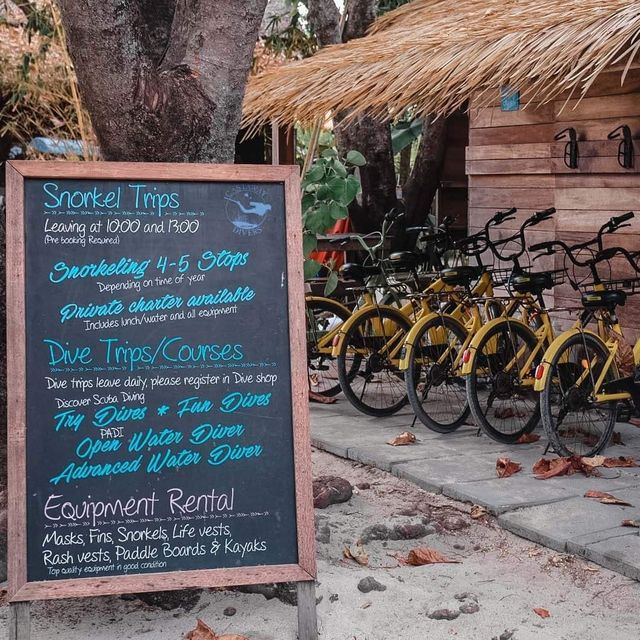 Snorkel Trips
Leaving at 10:00 and 13:00
(Pre booking Required)
DIVERS
Snorkeling 4-5 Stops
Depending on time of year
Private charter available
Includes lunch/water and all equipment
Dive Trips/Courses
Dive trips leave daily, please register in Dive shop
Discover Scuba Diving
Try Dives * Fun Dives
PADI
Open Water Diver
Advanced Water Diver
Equipment Rental
Masks, Fins, Snorkels, Life vests,
Rash vests, Paddle Boards & Kayaks
Top quality equipment in good condition